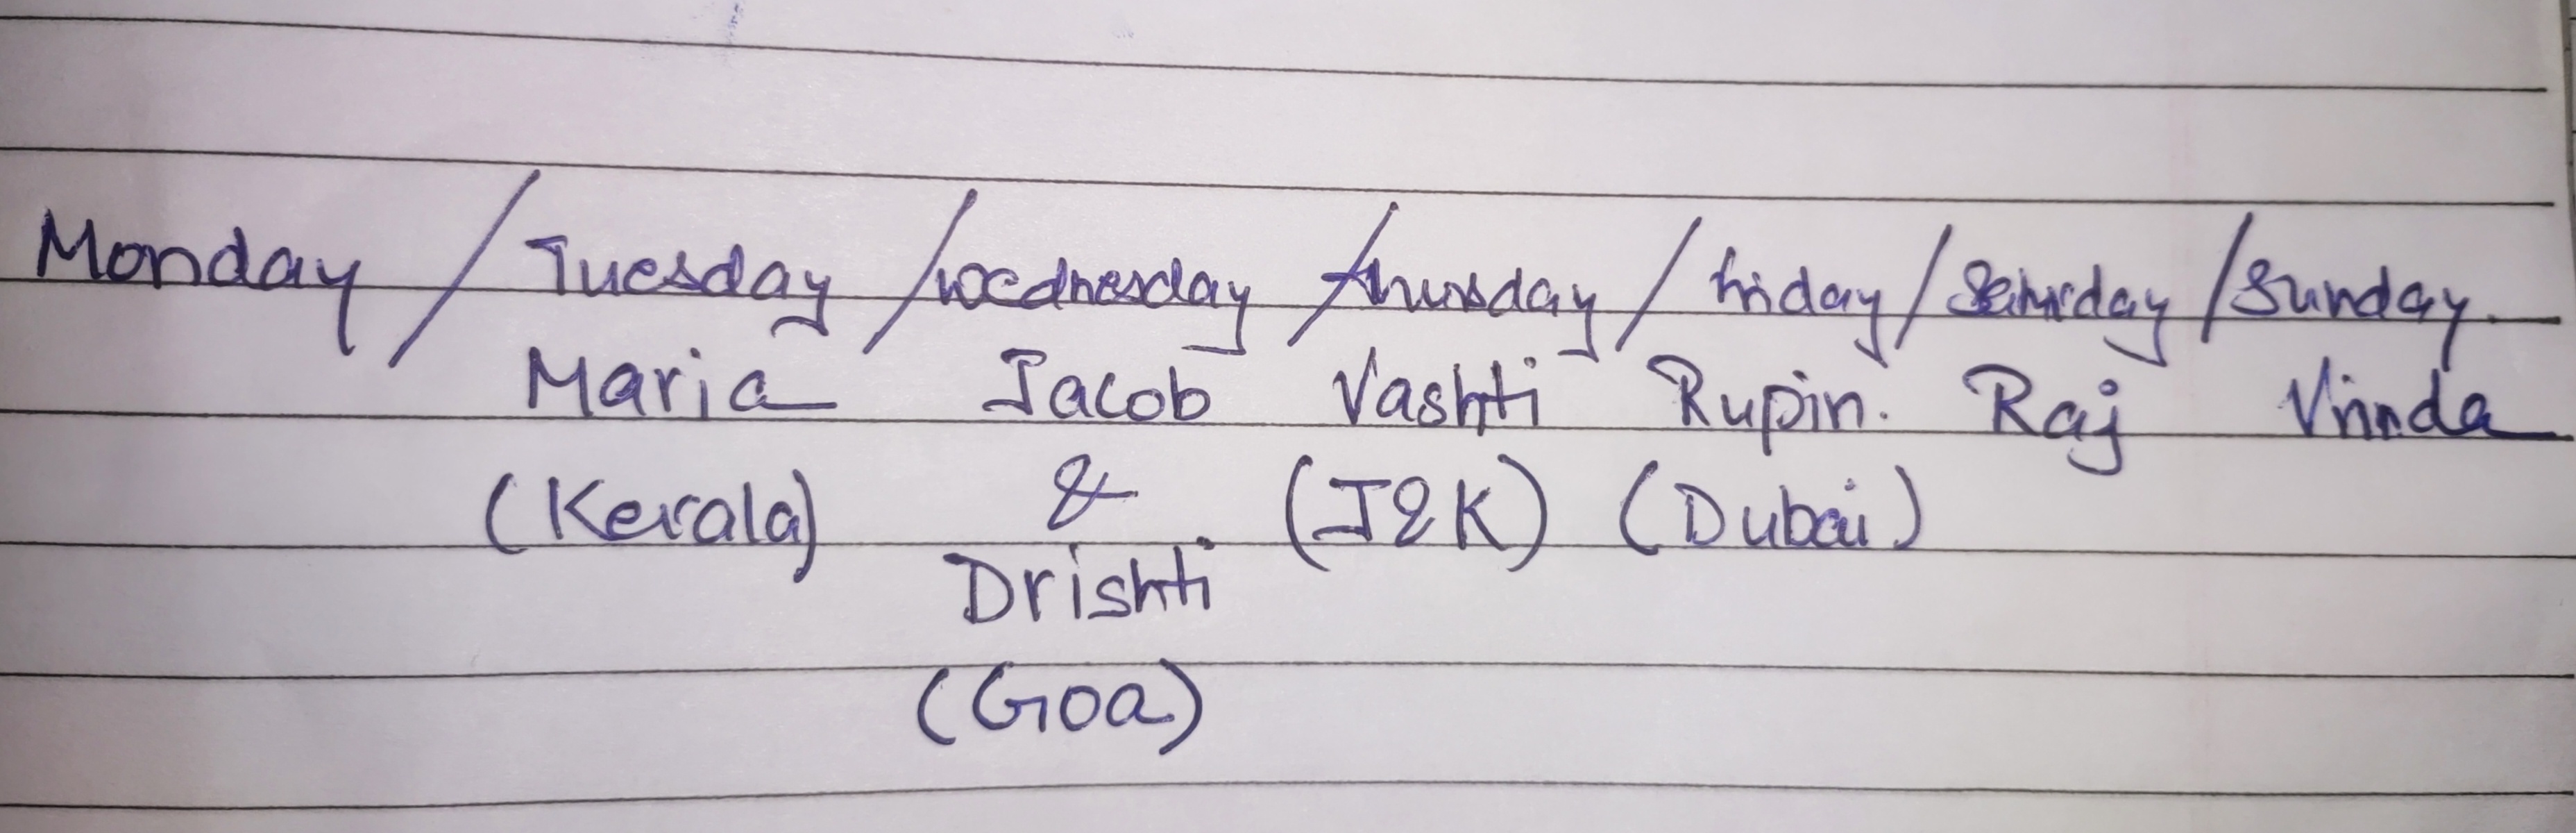 Monday / Tuesday / wednesday / thursday / friday / Saturday / Sunday.
Maria Jacob Vashti Rupin. Raj Vrinda
(Kerala) & (J&K) (Dubai)
Drishti
(Goa)